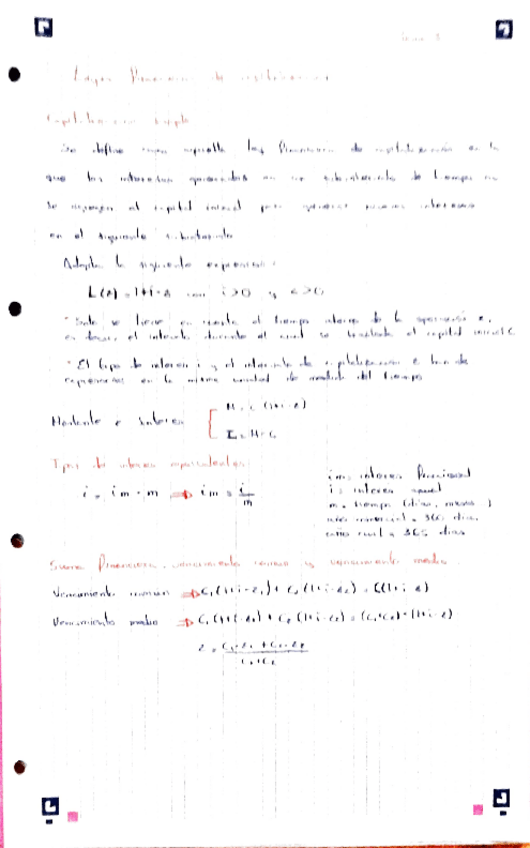 Tema 3
Leyes financieras de capitalización
Capitalización simple
Se define como aquella ley financiera de capitalización en la
que los intereses generados en un subintervalo de tiempo no
se agregan al capital inicial para generar nuevos intereses
en el siguiente subintervalo
Adopta la siguiente expresión:
L(z) = 1+i·z con i>0 y z>0
- Solo se tiene en cuenta el tiempo interno de la operación z,
es decir, el intervalo durante el cual se traslada el capital inicial C
- El tipo de interés i y el intervalo de capitalización z han de
expresarse en la misma unidad de medida del tiempo
Montante e interés
M = C (1+i·z)
I = M-C
Tipos de interés equivalentes
i = im · m ⇒ im = i/m
im = interés fraccional
i = interés anual
m = tiempo (días, meses )
año comercial = 360 días
año civil = 365 días
Suma financiera, vencimiento común y vencimiento medio
Vencimiento común ⇒ C₁(1+i·z₁) + C₂(1+i·z₂) = C(1+i·z)
Vencimiento medio ⇒ C₁(1+i·z₁) + C₂(1+i·z₂) = (C₁+C₂)·(1+i·z)
z = C₁·z₁ + C₂·z₂ / C₁+C₂